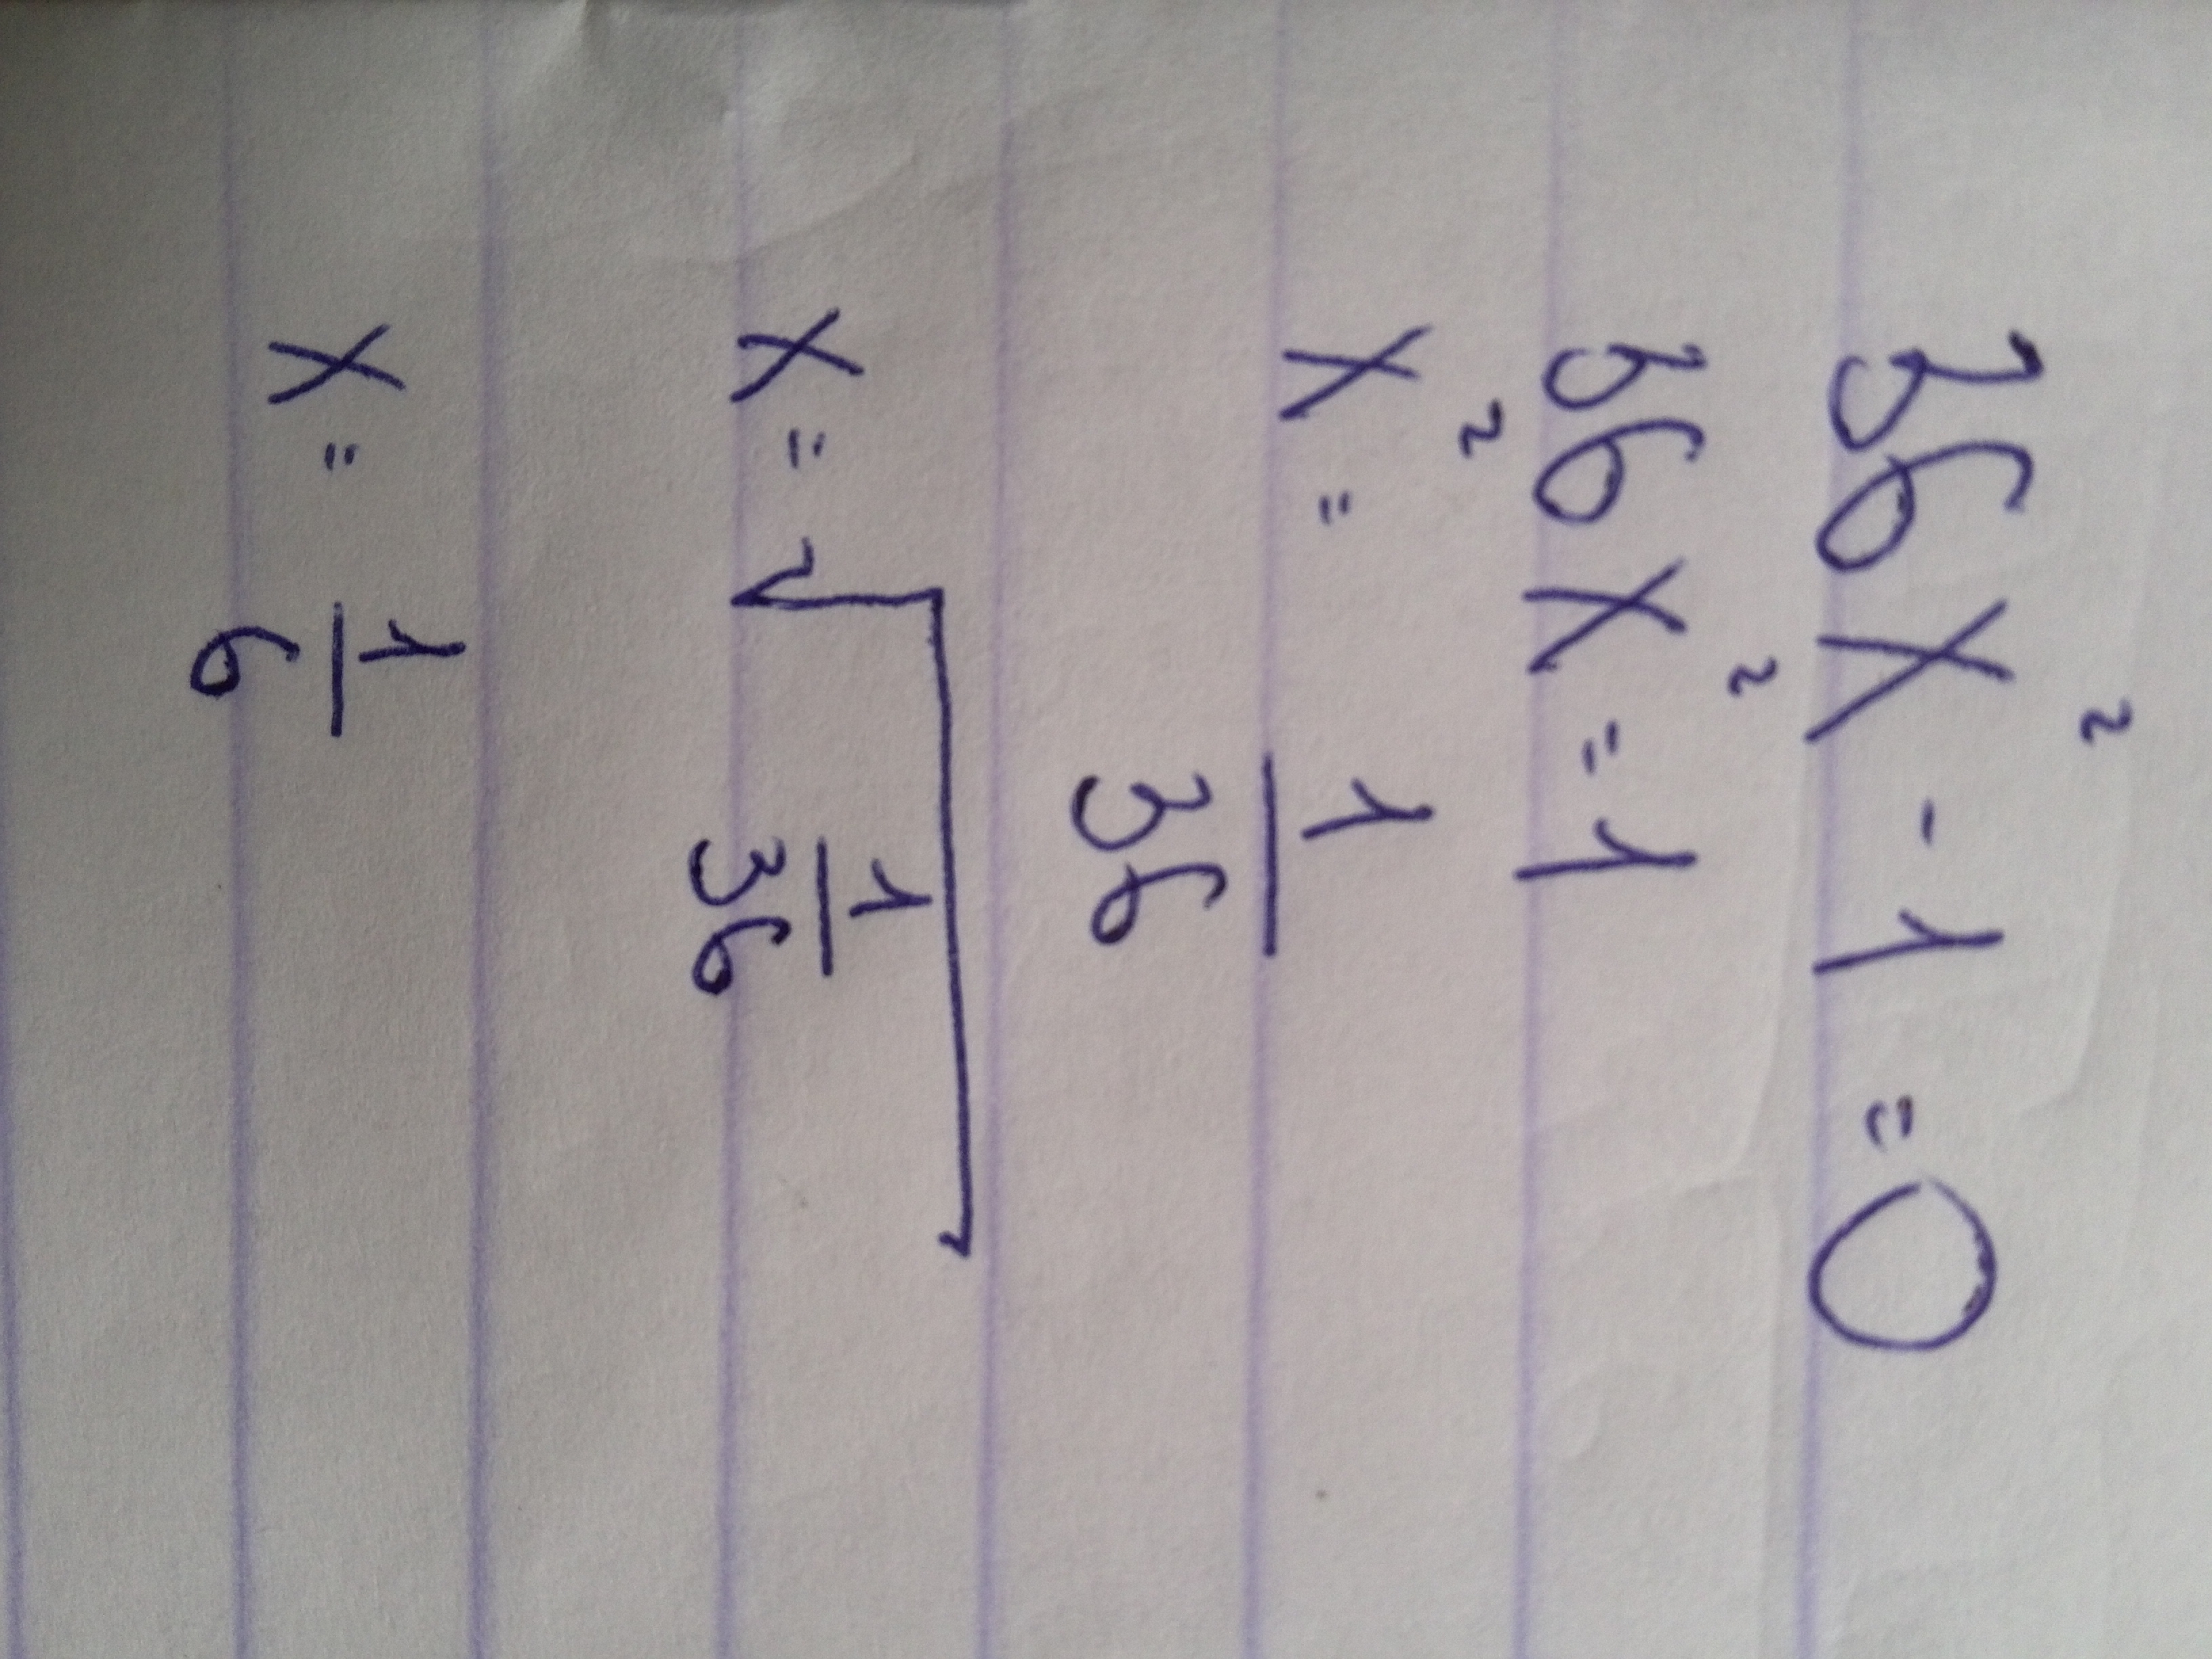 36x² - 1 = 0
36x² = 1
x² = 1/36
x = √(1/36)
x = 1/6